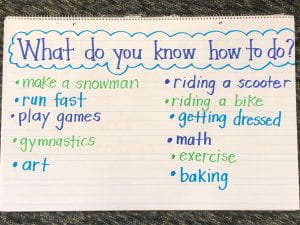 What do you know how to do?
• make a snowman
• run fast
• play games
• gymnastics
• art
• riding a scooter
• riding a bike
• getting dressed
• math
• exercise
• baking